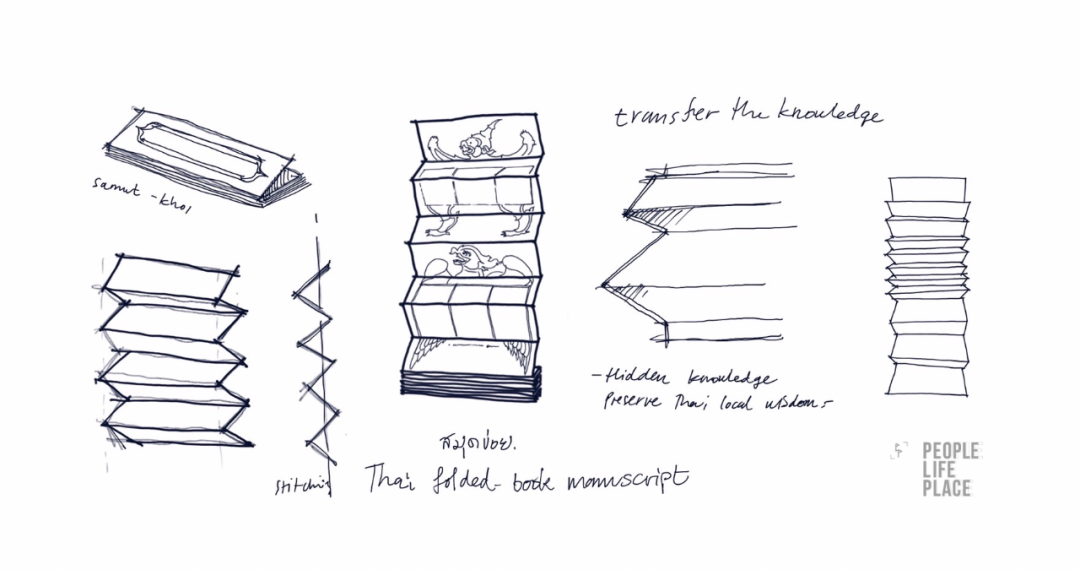 transfer the knowledge
samut - khoi
- Hidden knowledge
Preserve Thai local wisdom -
สมุดข่อย.
stitching
Thai folded - book manuscript
PEOPLE
LIFE
PLACE